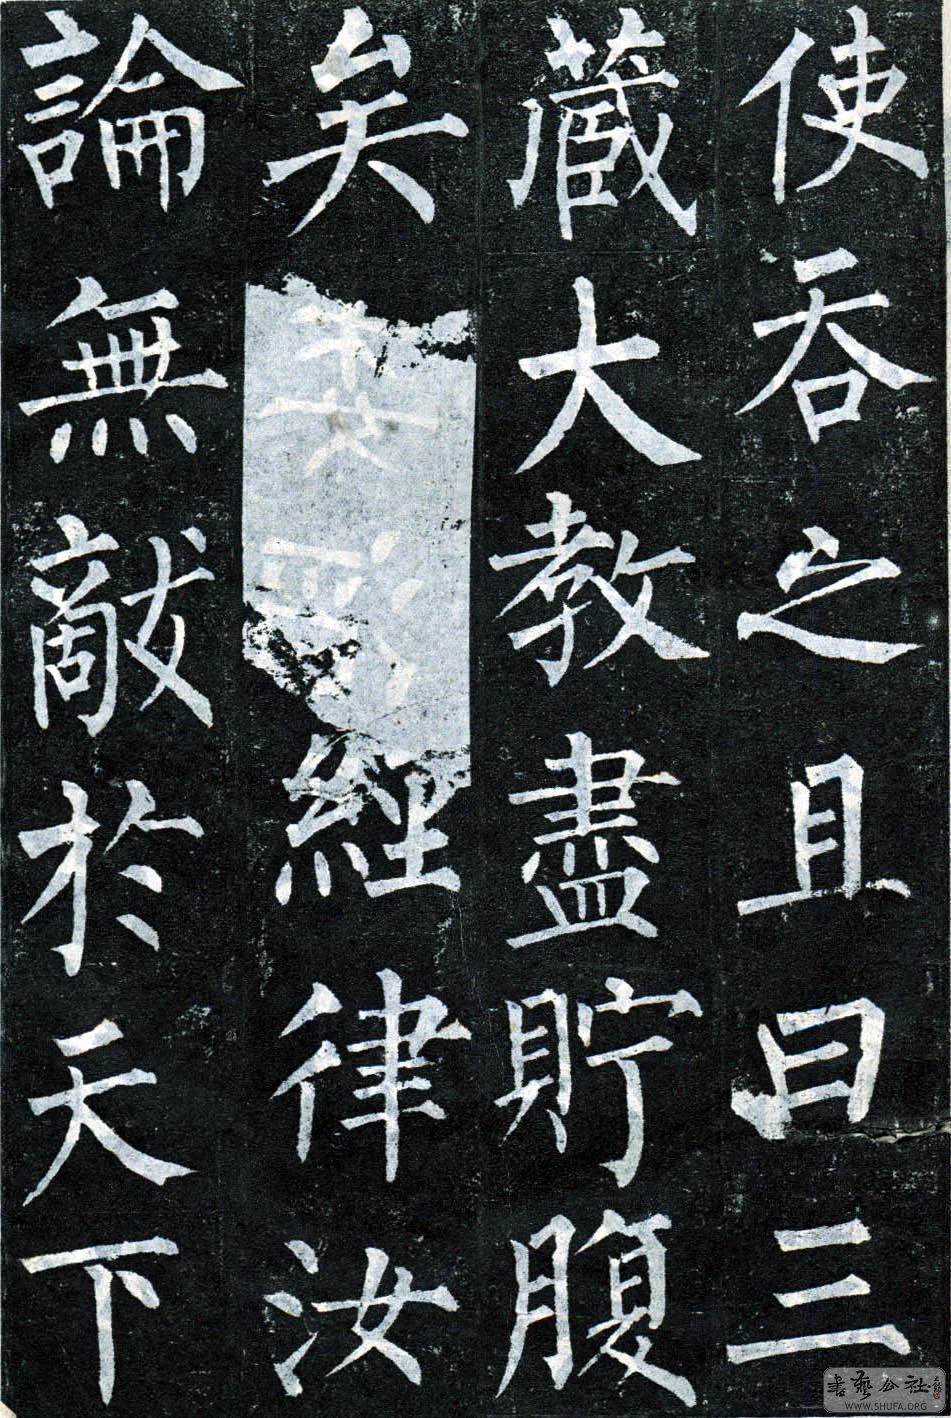 使吞之且曰三
藏大教盡貯腹
矣經律汝
論無敵於天下
書藝公社
WWW.SHUFA.ORG